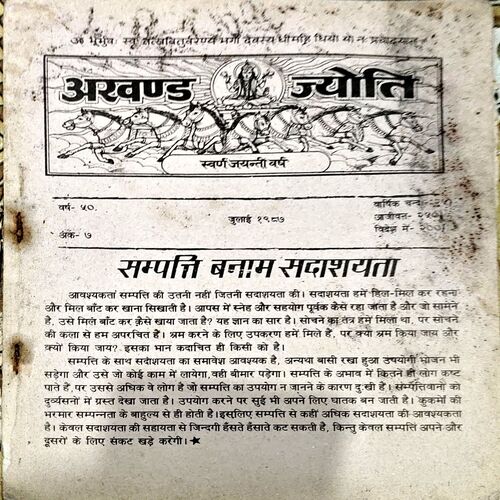 ॐ भूर्भुवः स्वः तत्सवितुर्वरेण्यं भर्गो देवस्य धीमहि धियो यो नः प्रचोदयात्
अखण्ड ज्योति
स्वर्ण जयन्ती वर्ष
वर्ष- ५०
जुलाई १९८७
वार्षिक चन्दा-
आजीवन-
विदेश में-
अंक- ७
सम्पत्ति बनाम सदाशयता
आवश्यकता सम्पत्ति की उतनी नहीं जितनी सदाशयता की। सदाशयता हमें हिल-मिल कर रहना
और मिल बाँट कर खाना सिखाती है। आपस में स्नेह और सहयोग पूर्वक कैसे रहा जाता है और जो सामने
है, उसे मिल बाँट कर कैसे खाया जाता है? यह ज्ञान का सार है। सोचने का तंत्र हमें मिला था, पर सोचने
की कला से हम अपरचित हैं। श्रम करने के लिए उपकरण हमें मिले हैं, पर क्या श्रम किया जाय और
क्यों किया जाय?. इसका भान कदाचित ही किसी को है।
सम्पत्ति के साथ सदाशयता का समावेश आवश्यक है, अन्यथा बासी रखा हुआ उपयोगी भोजन भी
सड़ेगा और उसे जो कोई काम में लायेगा, वही बीमार पड़ेगा। सम्पत्ति के अभाव में कितने ही लोग कष्ट
पाते हैं, पर उससे अधिक वे लोग है जो सम्पत्ति का उपयोग न जानने के कारण दुःखी हैं। संम्पत्तिवानों को
दुर्व्यसनों में ग्रस्त देखा जाता है। उपयोग करने पर सुई भी अपने लिए घातक बन जाती है। कुकर्मो की
भरमार सम्पन्नता के बाहुल्य से ही होती है। इसलिए सम्पत्ति से कहीं अधिक सदाशयता की आवश्यकता
है। केवल सदाशयता की सहायता से जिन्दगी हँसते हँसाते कट सकती है, किन्तु केवल सम्पत्ति अपने और
दूसरों के लिए संकट खड़े करेगी।★